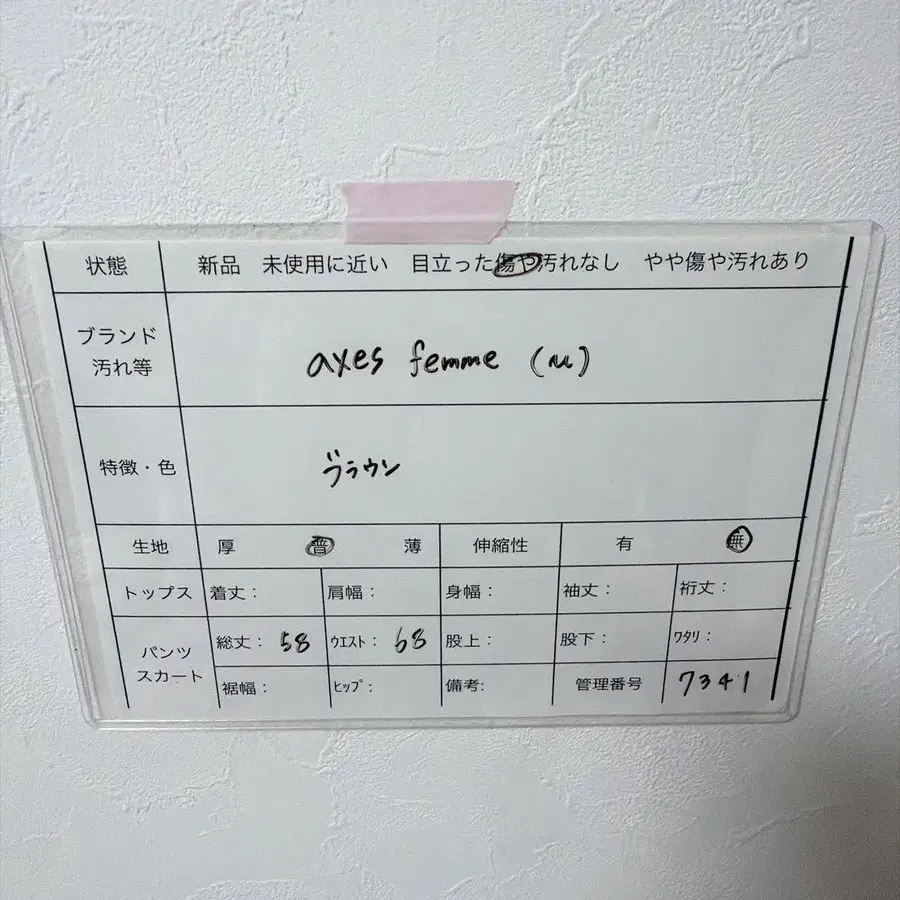 状態 新品 未使用に近い 目立った傷や汚れなし やや傷や汚れあり
ブランド
汚れ等
axes femme (M)
特徴・色 ブラウン
生地 厚 普 薄 伸縮性 有 無
トップス 着丈: 肩幅: 身幅: 袖丈: 裄丈:
パンツ
スカート
総丈: 58 ウエスト: 68 股上: 股下: ワタリ:
裾幅: ヒップ: 備考: 管理番号 7341